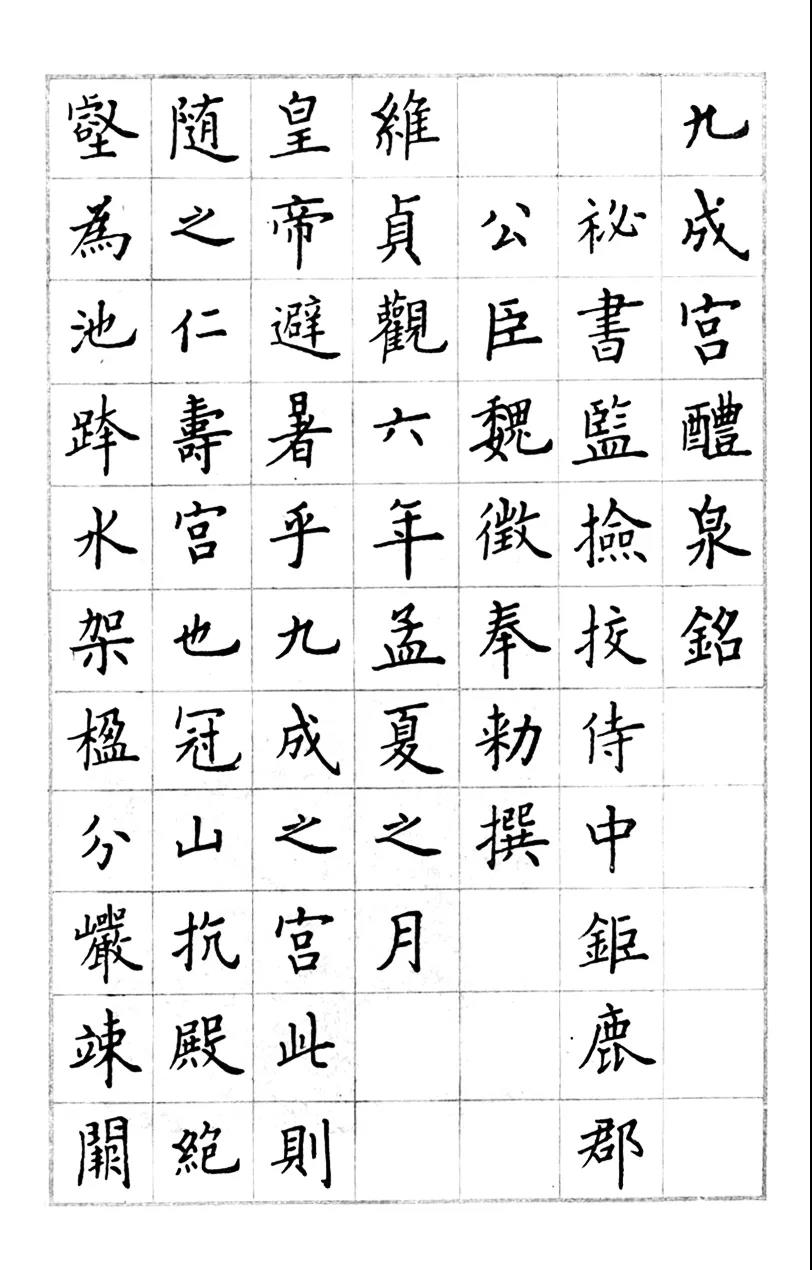 九成宮醴泉銘
祕書監撿挍侍中鉅鹿郡
公臣魏徵奉勑撰
維貞觀六年孟夏之月
皇帝避暑乎九成之宮此則
随之仁壽宮也冠山抗殿絶
壑為池跨水架楹分巖竦闕